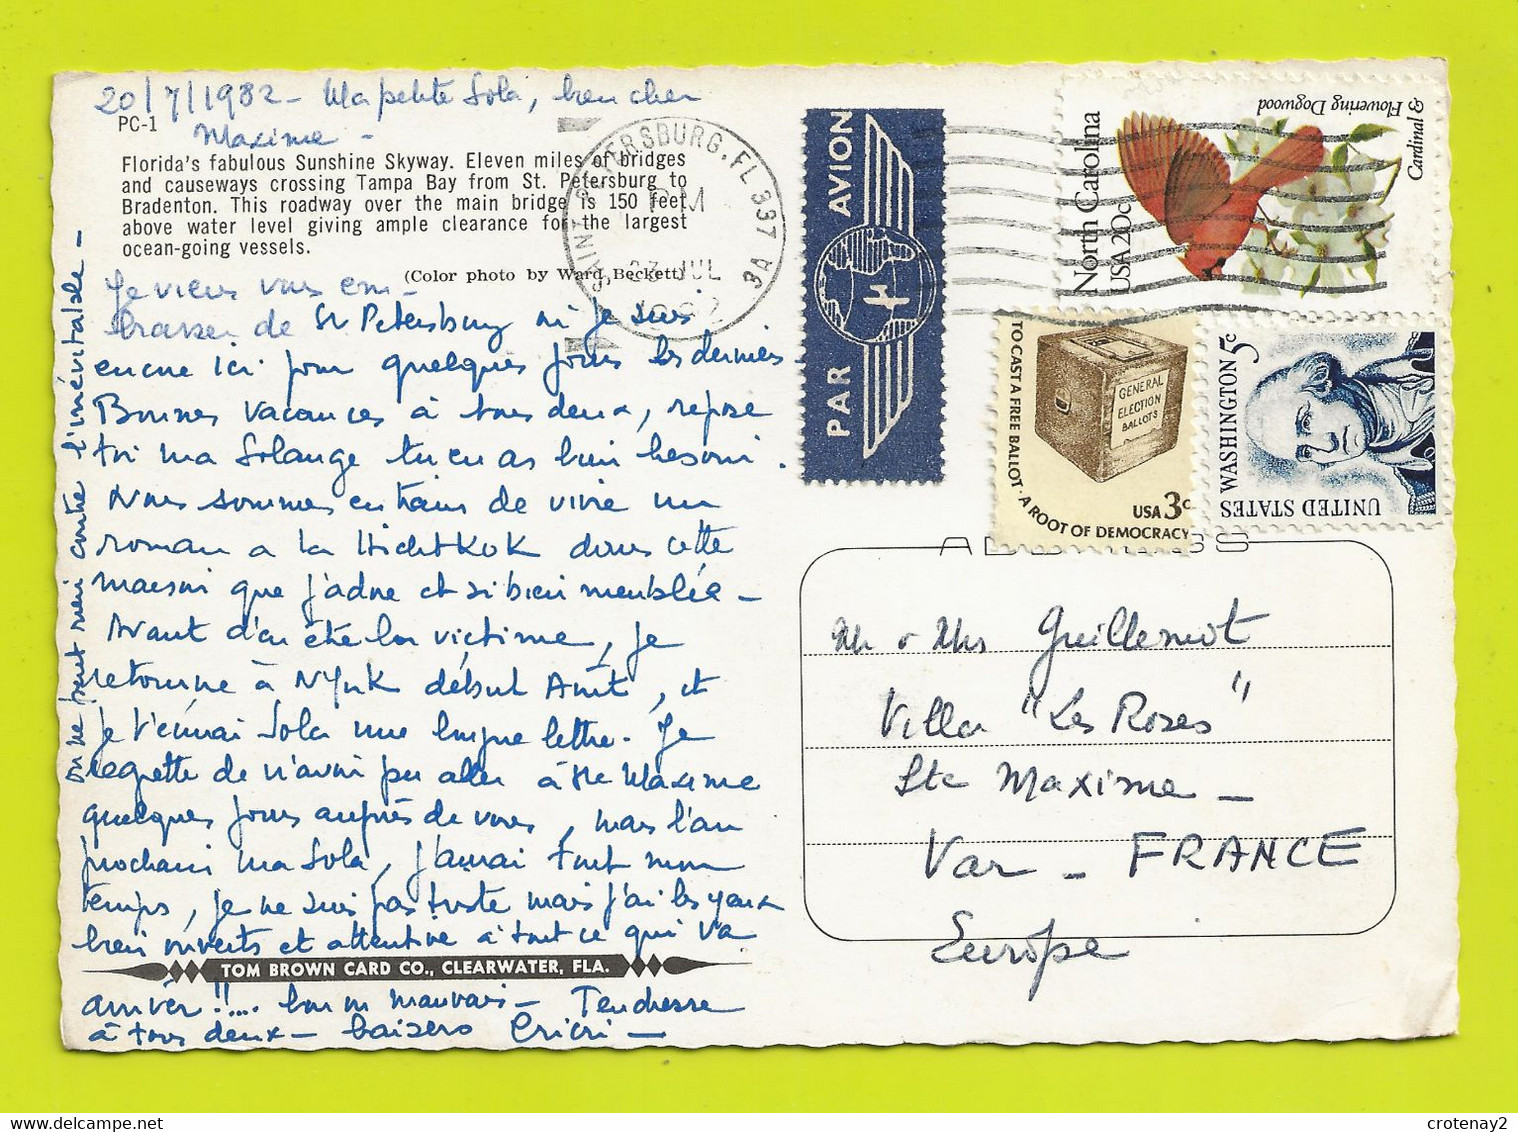 20/7/1982 - Ma petite Sola, bien cher
Maxime -
PC-1
Florida's fabulous Sunshine Skyway. Eleven miles of bridges
and causeways crossing Tampa Bay from St. Petersburg to
Bradenton. This roadway over the main bridge is 150 feet
above water level giving ample clearance for the largest
ocean-going vessels.
(Color photo by Ward Beckett)
Je viens vous em-
brasser de St Petersburg où je suis
encore ici pour quelques jours les derniers -
Bonnes vacances à tous deux, repose
toi ma Solange tu en as bien besoin.
Nous sommes en train de vivre un
roman a la Hichtkok dans cette
maison que j'adore et si bien meublée -
Avant d'en être la victime, je
retourne à N York début Août, et
je t'écrirai Sola une longue lettre. Je
regrette de n'avoir pu aller à Ste Maxime
quelques jours auprès de vous, mais l'an
prochain ma Sola, j'aurai tout mon
temps, je ne suis pas triste mais j'ai les yeux
bien ouverts et attentive à tout ce qui va
TOM BROWN CARD CO., CLEARWATER, FLA.
arriver !!.... bon ou mauvais - Tendresse
à tous deux - baisers Cricri -
on ne peut rien contre l'inévitable -
SAINT PETERSBURG, FL 337
PM
23 JUL
1982
3A
PAR AVION
North Carolina
USA 20c
Cardinal & Flowering Dogwood
TO CAST A FREE BALLOT · A ROOT OF DEMOCRACY
GENERAL
ELECTION
BALLOTS
USA 3c
WASHINGTON 5c
UNITED STATES
Mr & Mrs Guillemot
Villa "Les Roses"
Ste Maxime -
Var - FRANCE
Europe
crotenay2